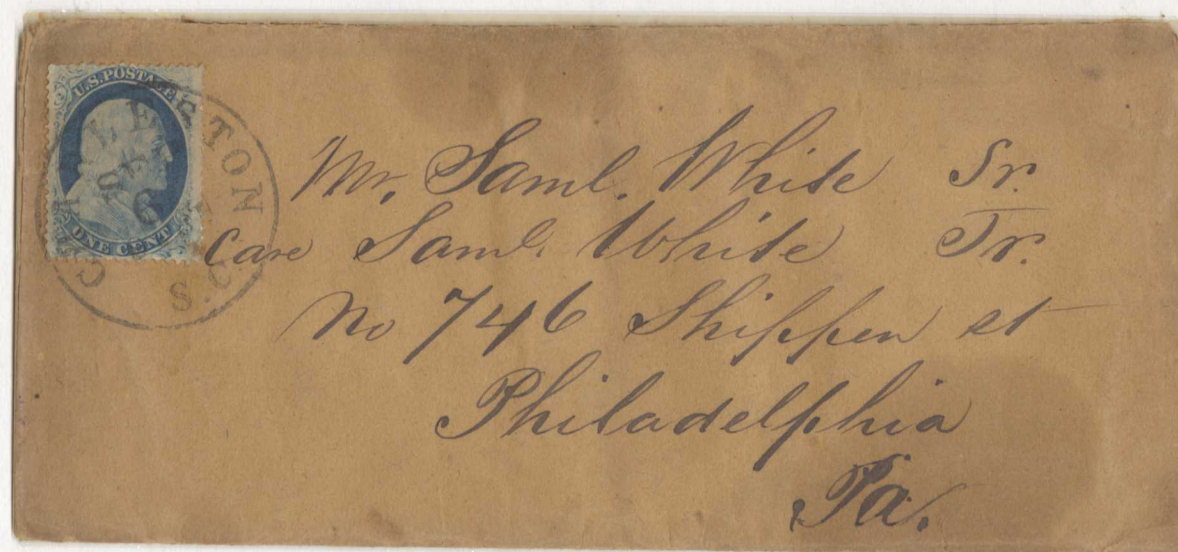 U.S. POSTAGE
ONE CENT
CHARLESTON
S.C.
6
Mr. Saml. White Sr.
Care Saml. White Jr.
No 746 Shippen st
Philadelphia
Pa.